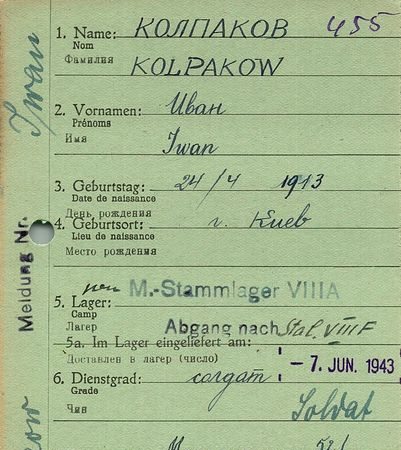 455
1. Name: КОЛПАКОВ
Nom
Фамилия KOLPAKOW
2. Vornamen: Иван
Prénoms
Имя Iwan
3. Geburtstag: 24/4 1913
Date de naissance
День рождения
4. Geburtsort: г. Киев
Lieu de naissance
Место рождения
M.-Stammlager VIIIA
5. Lager:
Camp
Лагерь Abgang nach Stal. VIII F
5a. Im Lager eingeliefert am:
Доставлен в лагерь (число) - 7. JUN. 1943
6. Dienstgrad: солдат
Grade
Чин Soldat
Iwan
Meldung Nr.